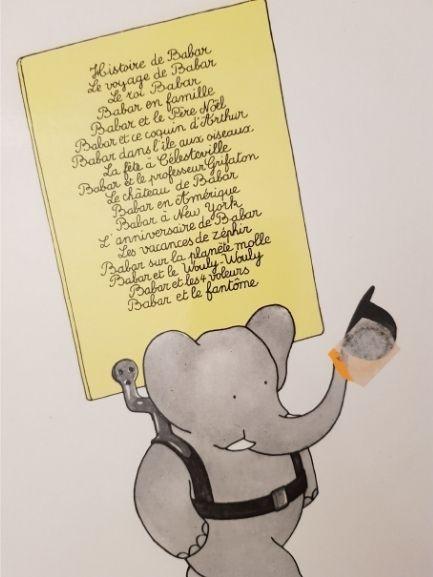 Histoire de Babar
Le voyage de Babar
Le roi Babar
Babar en famille
Babar et le Père Noël
Babar et ce coquin d'Arthur
Babar dans l'île aux oiseaux
La fête à Célesteville
Babar et le professeur Grifaton
Le château de Babar
Babar en Amérique
Babar à New York
L'anniversaire de Babar
Les vacances de zéphir
Babar sur la planète molle
Babar et le Wouly-Wouly
Babar et les 4 voleurs
Babar et le fantôme